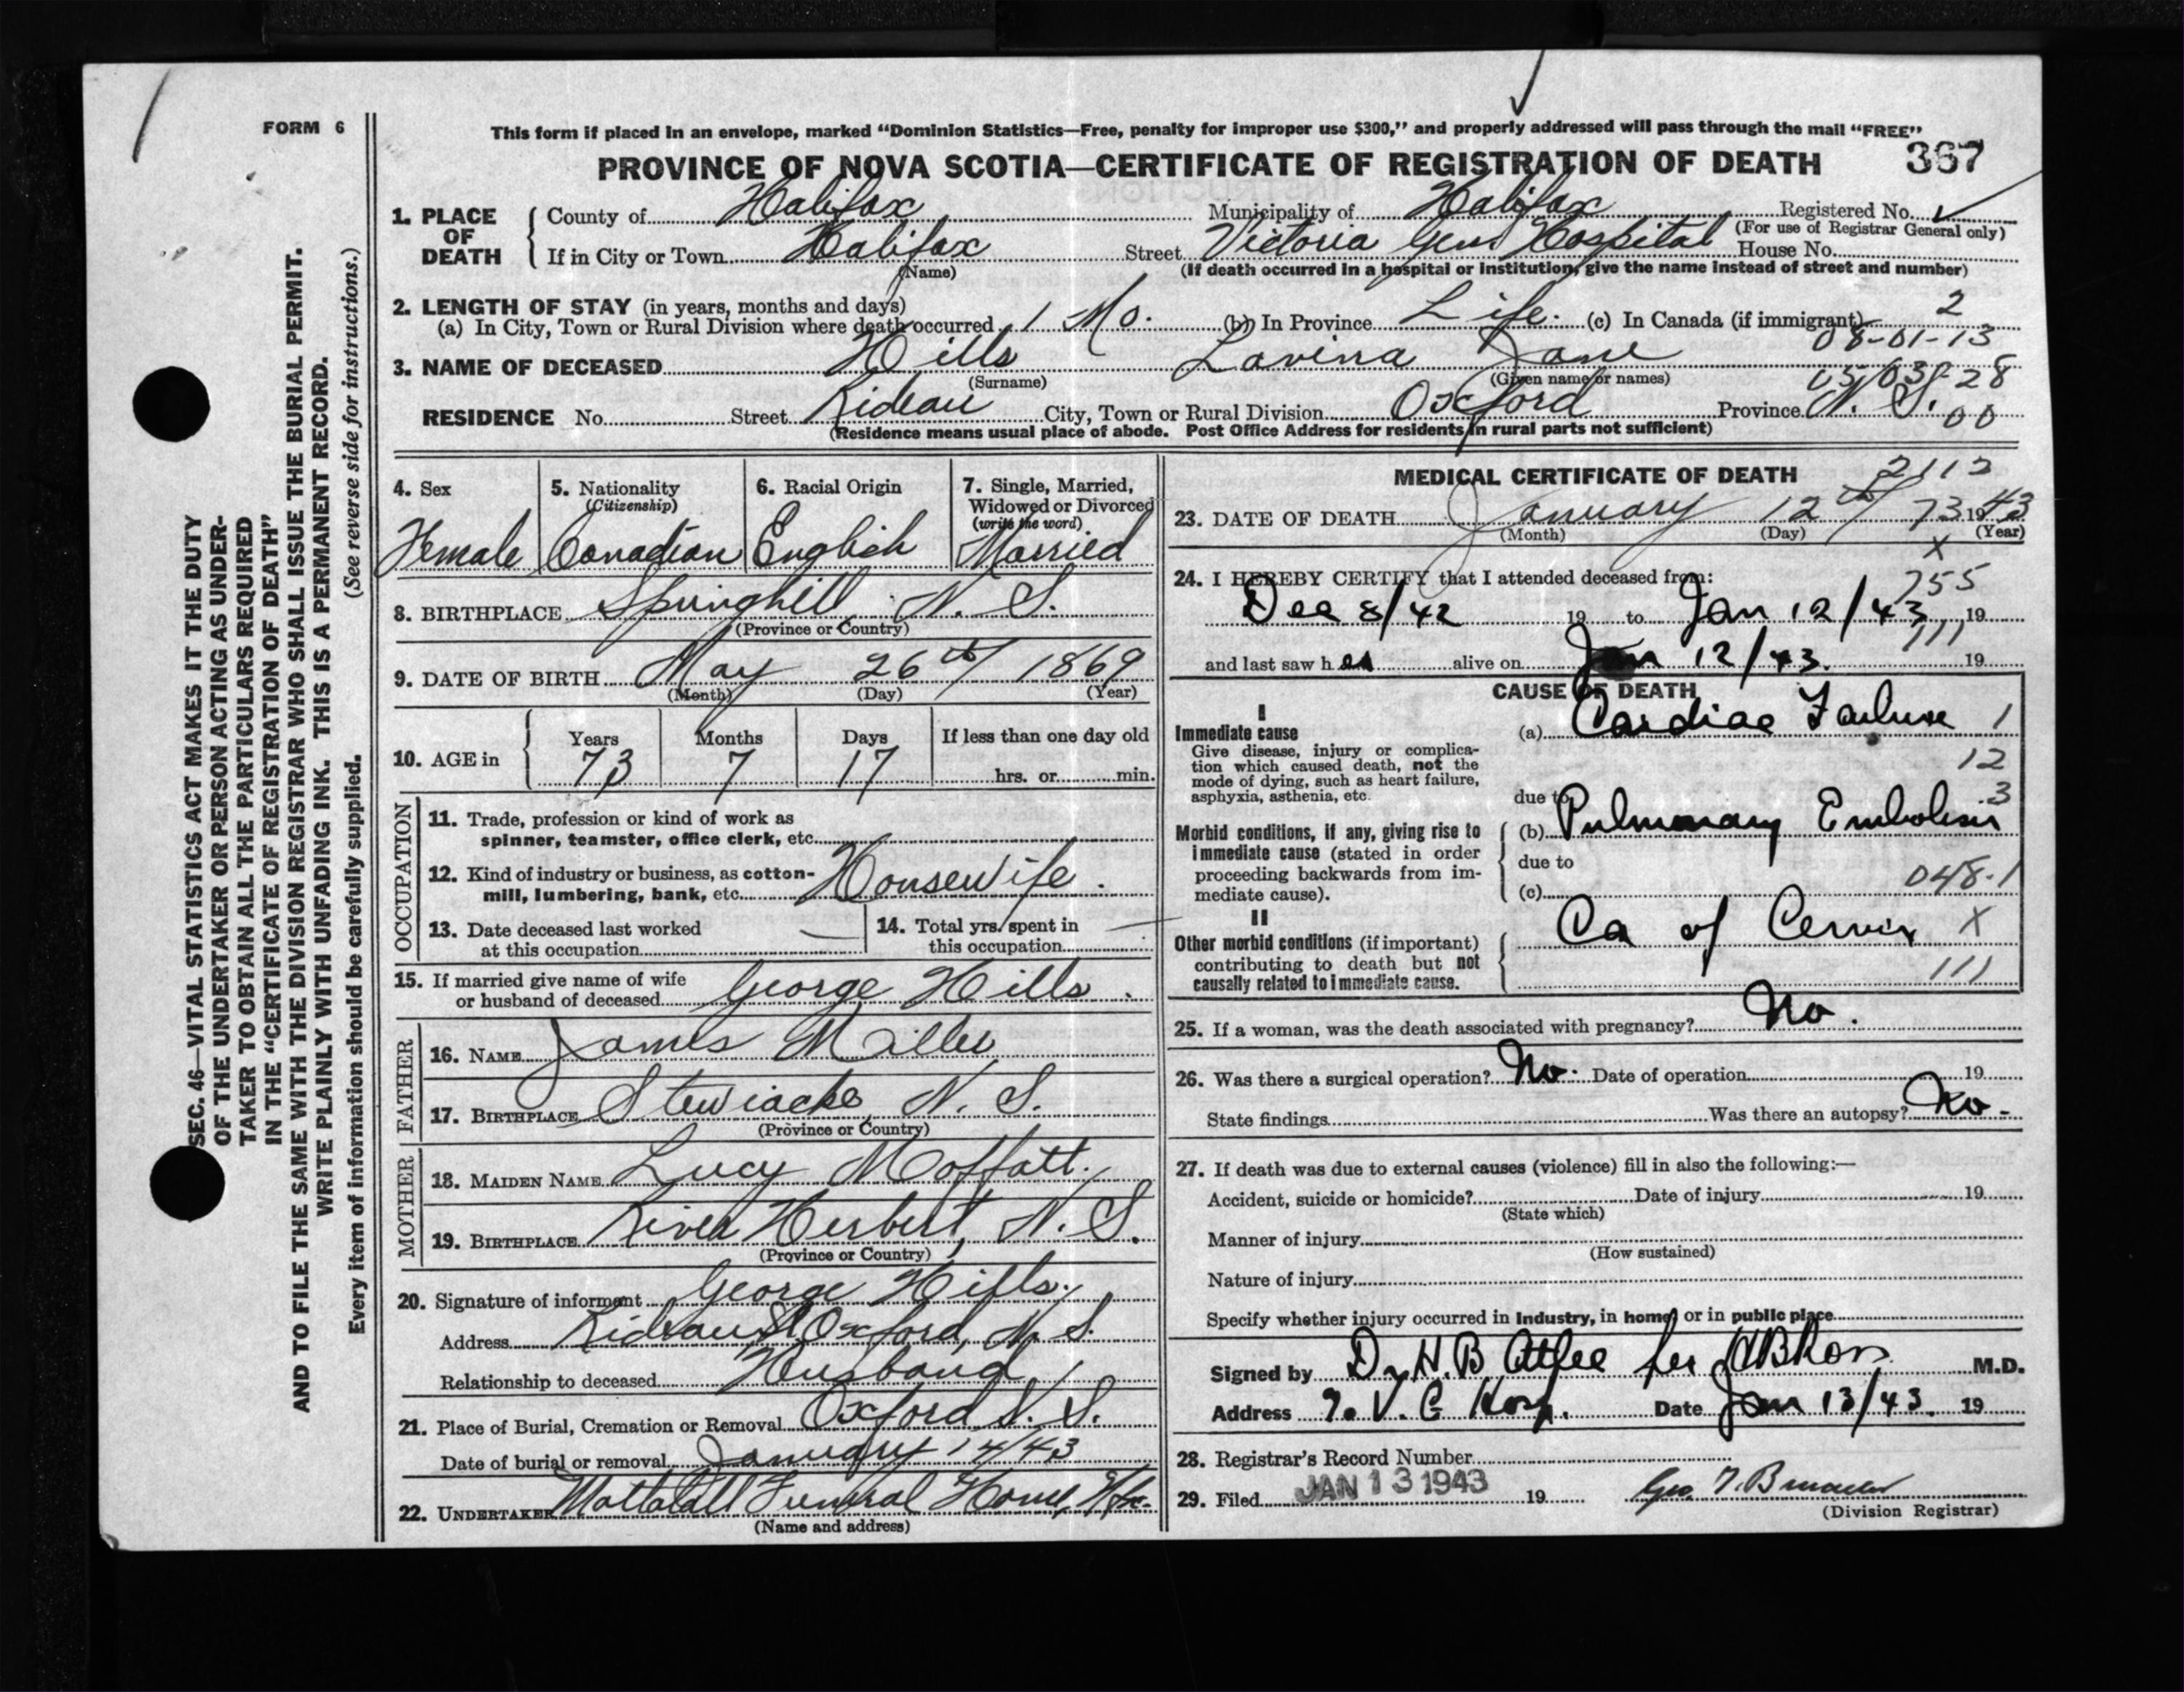 FORM 6
This form if placed in an envelope, marked “Dominion Statistics—Free, penalty for improper use $300,” and properly addressed will pass through the mail “FREE”
PROVINCE OF NOVA SCOTIA—CERTIFICATE OF REGISTRATION OF DEATH 367
1. PLACE OF DEATH County of Halifax Municipality of Halifax Registered No.
(For use of Registrar General only)
If in City or Town Halifax Street Victoria Genl Hospital House No.
(Name) (If death occurred in a hospital or institution, give the name instead of street and number)
2. LENGTH OF STAY (in years, months and days)
(a) In City, Town or Rural Division where death occurred 1 Mo. (b) In Province Life. (c) In Canada (if immigrant) 2
08-01-13
3. NAME OF DECEASED Hills Lavina Jane
(Surname) (Given name or names)
RESIDENCE No. Street Rideau City, Town or Rural Division Oxford Province N. S. 00
(Residence means usual place of abode. Post Office Address for residents in rural parts not sufficient)
4. Sex 5. Nationality (Citizenship) 6. Racial Origin 7. Single, Married, Widowed or Divorced (write the word)
Female Canadian English Married
8. BIRTHPLACE Springhill, N. S.
(Province or Country)
9. DATE OF BIRTH May 26th 1869
(Month) (Day) (Year)
10. AGE in Years Months Days If less than one day old
73 7 17 hrs. or min.
OCCUPATION
11. Trade, profession or kind of work as
spinner, teamster, office clerk, etc.
12. Kind of industry or business, as cotton-
mill, lumbering, bank, etc. Housewife.
13. Date deceased last worked
at this occupation —
14. Total yrs. spent in
this occupation —
15. If married give name of wife
or husband of deceased George Hills.
FATHER
16. NAME James Miller
17. BIRTHPLACE Stewiacke, N. S.
(Province or Country)
MOTHER
18. MAIDEN NAME Lucy Moffatt.
19. BIRTHPLACE River Herbert, N. S.
(Province or Country)
20. Signature of informant George Hills.
Address Rideau St Oxford, N. S.
Relationship to deceased Husband
21. Place of Burial, Cremation or Removal Oxford N. S.
Date of burial or removal January 14/43
22. UNDERTAKER Mattatall Funeral Home, Hfx.
(Name and address)
MEDICAL CERTIFICATE OF DEATH 2112
23. DATE OF DEATH January 12th 73 1943
(Month) (Day) (Year)
X
24. I HEREBY CERTIFY that I attended deceased from: 755
Dec 8/42 19 to Jan 12/43 19
111
and last saw her alive on Jan 12/43. 19
CAUSE OF DEATH
I
Immediate cause (a) Cardiac Failure 1
Give disease, injury or complica-
tion which caused death, not the
mode of dying, such as heart failure,
asphyxia, asthenia, etc.
12
due to 3
Morbid conditions, if any, giving rise to
immediate cause (stated in order
proceeding backwards from im-
mediate cause).
(b) Pulmonary Embolism
due to
(c) 048.1
II
Ca of Cervix X
Other morbid conditions (if important)
contributing to death but not
causally related to immediate cause.
111
25. If a woman, was the death associated with pregnancy? No.
26. Was there a surgical operation? No. Date of operation 19
State findings Was there an autopsy? No.
27. If death was due to external causes (violence) fill in also the following:—
Accident, suicide or homicide? Date of injury 19
(State which)
Manner of injury
(How sustained)
Nature of injury
Specify whether injury occurred in industry, in home, or in public place
Signed by Dr H. B Atlee per M.D.
Address V. G Hosp. Date Jan 13/43. 19
28. Registrar's Record Number
29. Filed JAN 13 1943 19
(Division Registrar)
SEC. 46—VITAL STATISTICS ACT MAKES IT THE DUTY
OF THE UNDERTAKER OR PERSON ACTING AS UNDER-
TAKER TO OBTAIN ALL THE PARTICULARS REQUIRED
IN THE “CERTIFICATE OF REGISTRATION OF DEATH”
AND TO FILE THE SAME WITH THE DIVISION REGISTRAR WHO SHALL ISSUE THE BURIAL PERMIT.
WRITE PLAINLY WITH UNFADING INK. THIS IS A PERMANENT RECORD.
Every item of information should be carefully supplied. (See reverse side for instructions.)